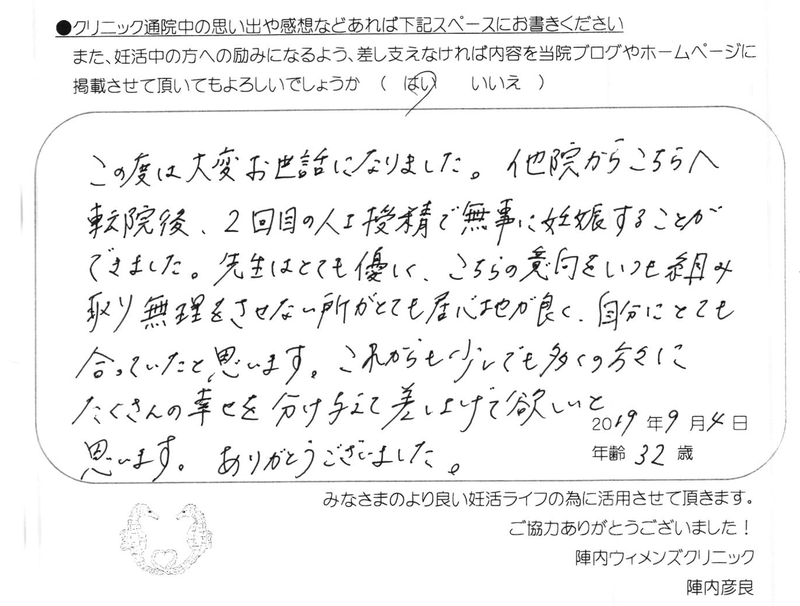 ●クリニック通院中の思い出や感想などあれば下記スペースにお書きください
また、妊活中の方への励みになるよう、差し支えなければ内容を当院ブログやホームページに
掲載させて頂いてもよろしいでしょうか （ はい いいえ ）
この度は大変お世話になりました。他院からこちらへ
転院後、2回目の人工授精で無事に妊娠することが
できました。先生はとても優しく、こちらの意向をいつも組み
取り無理をさせない所がとても居心地が良く、自分にとても
合っていたと思います。これからも少しでも多くの方々に
たくさんの幸せを分け与えて差し上げて欲しいと
思います。ありがとうございました。
2019年9月4日
年齢 32 歳
みなさまのより良い妊活ライフの為に活用させて頂きます。
ご協力ありがとうございました！
陣内ウィメンズクリニック
陣内彦良